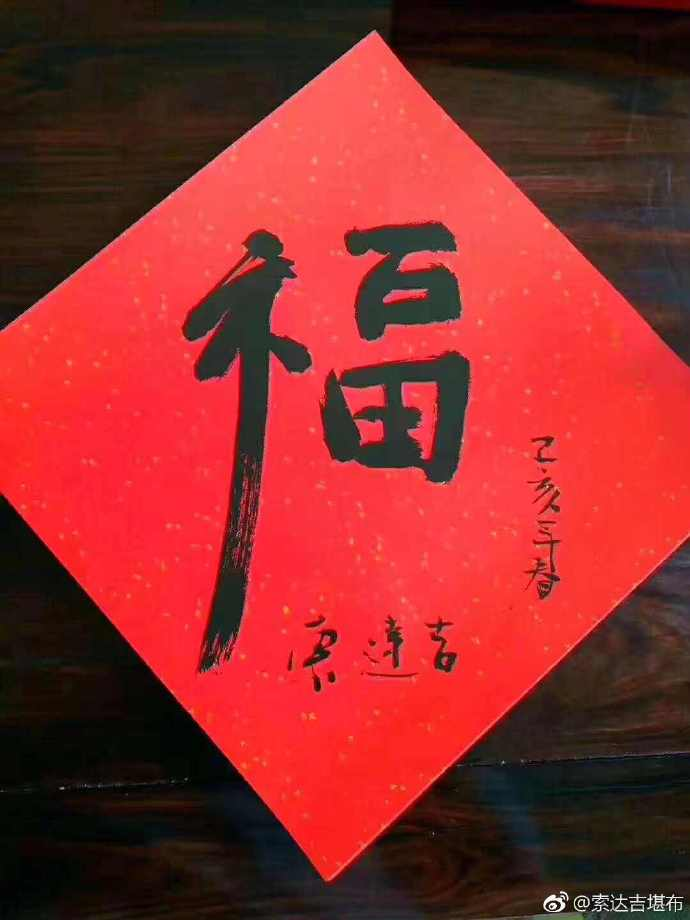 福
己亥年春
索達吉
@索达吉堪布